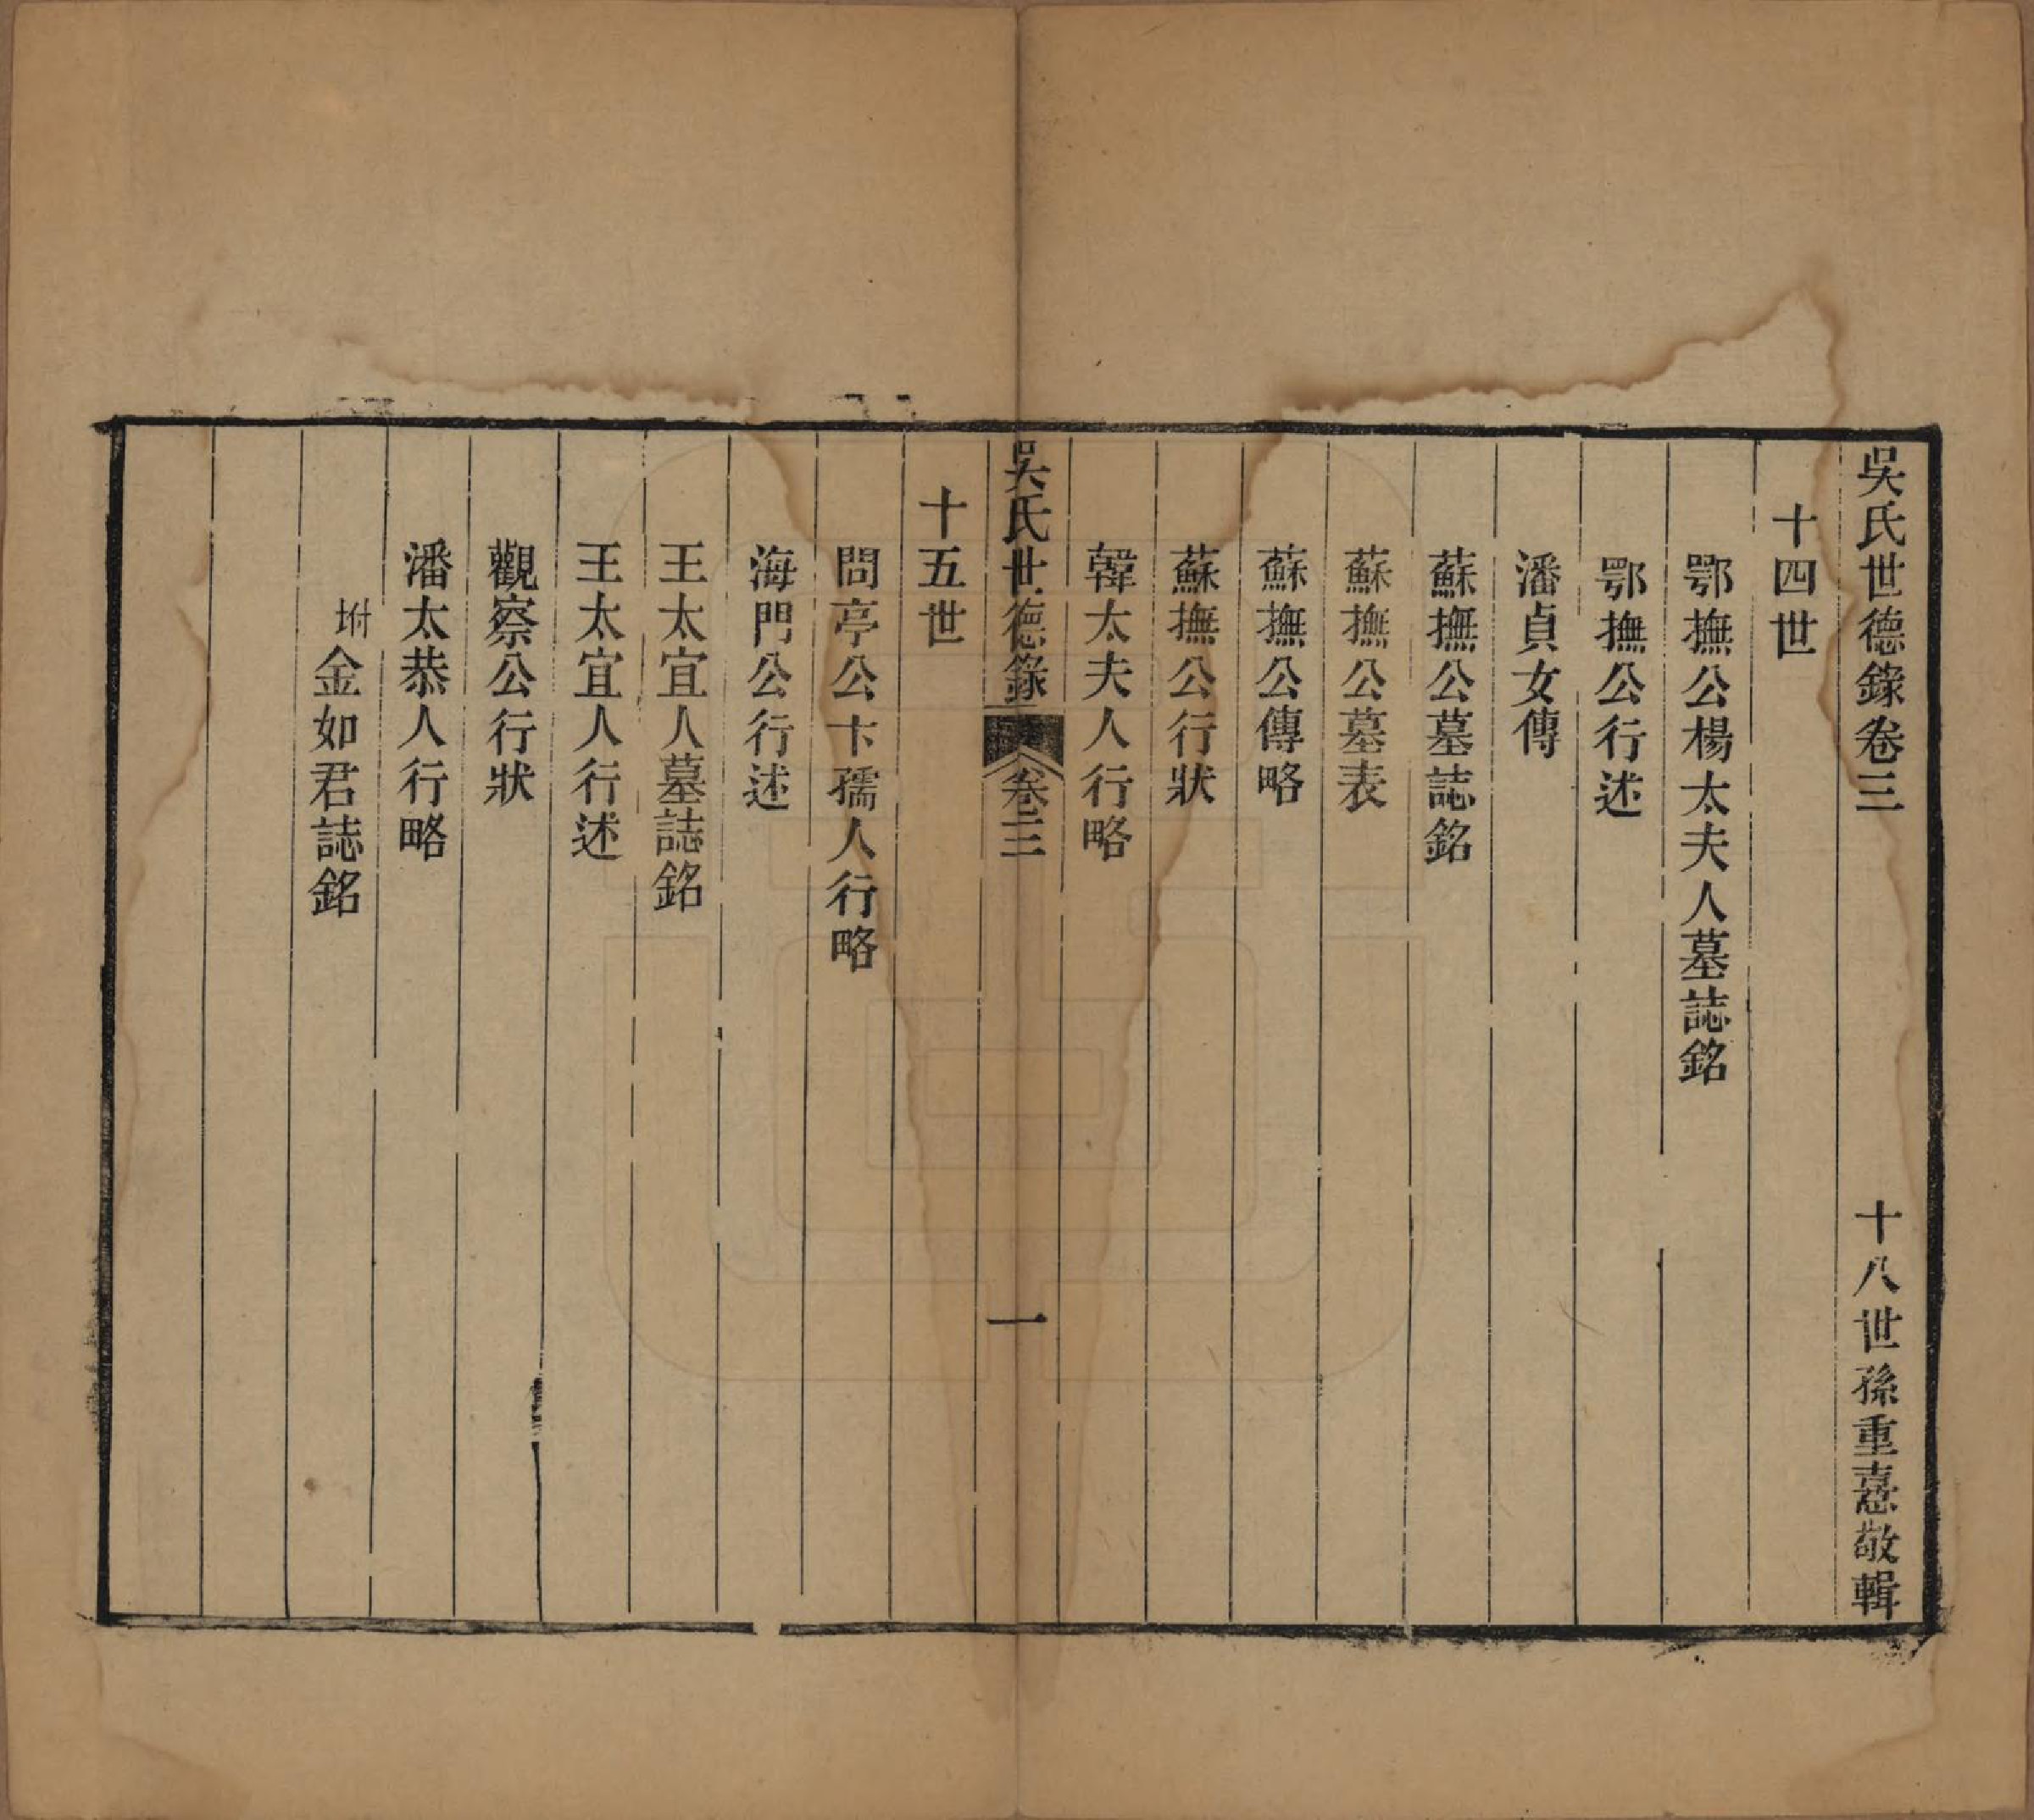 吳氏世德錄卷三　十八世孫重憙敬輯
十四世
鄂撫公楊太夫人墓誌銘
鄂撫公行述
潘貞女傳
蘇撫公墓誌銘
蘇撫公墓表
蘇撫公傳略
蘇撫公行狀
韓太夫人行略
吳氏世德錄　卷三　一
十五世
問亭公卞孺人行略
海門公行述
王太宜人墓誌銘
王太宜人行述
觀察公行狀
潘太恭人行略
坿金如君誌銘